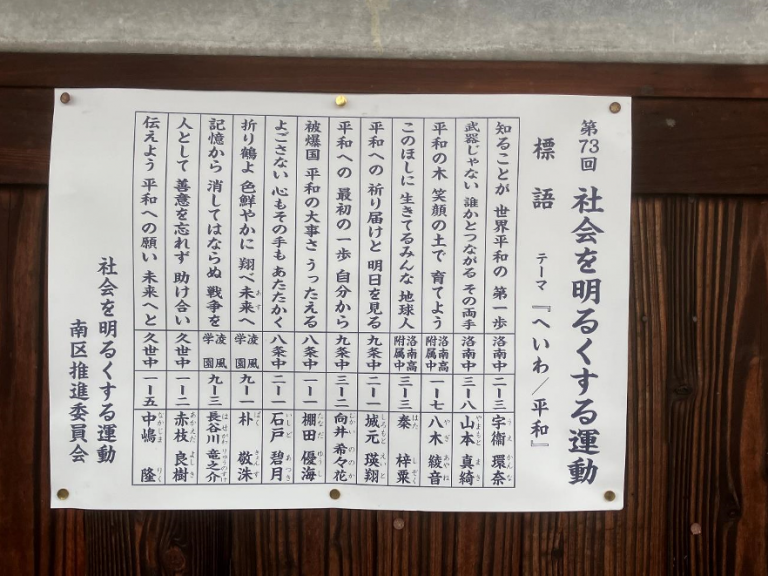 第73回 社会を明るくする運動
標語 テーマ 『へいわ/平和』
知ることが 世界平和の 第一歩 洛南中 二ー三 宇衛 環奈
武器じゃない 誰かとつながる その両手 洛南中 三ー八 山本 真綺
平和の木 笑顔の土で 育てよう 洛南高附属中 一ー七 八木 綾音
このほしに 生きてるみんな 地球人 洛南高附属中 三ー三 秦 梓粟
平和への 祈り届けと 明日を見る 九条中 二ー一 城元 瑛翔
平和への 最初の一歩 自分から 九条中 三ー二 向井 希々花
被爆国 平和の大事さ うったえる 八条中 一ー一 棚田 優海
よごさない 心もその手も あたたかく 八条中 二ー一 石戸 碧月
折り鶴よ 色鮮やかに 翔べ未来へ 凌風学園 九ー一 朴 敬洙
記憶から 消してはならぬ 戦争を 凌風学園 九ー三 長谷川 竜之介
人として 善意を忘れず 助け合い 久世中 一ー二 赤枝 良樹
伝えよう 平和への願い 未来へと 久世中 一ー五 中嶋 隆
社会を明るくする運動
南区推進委員会